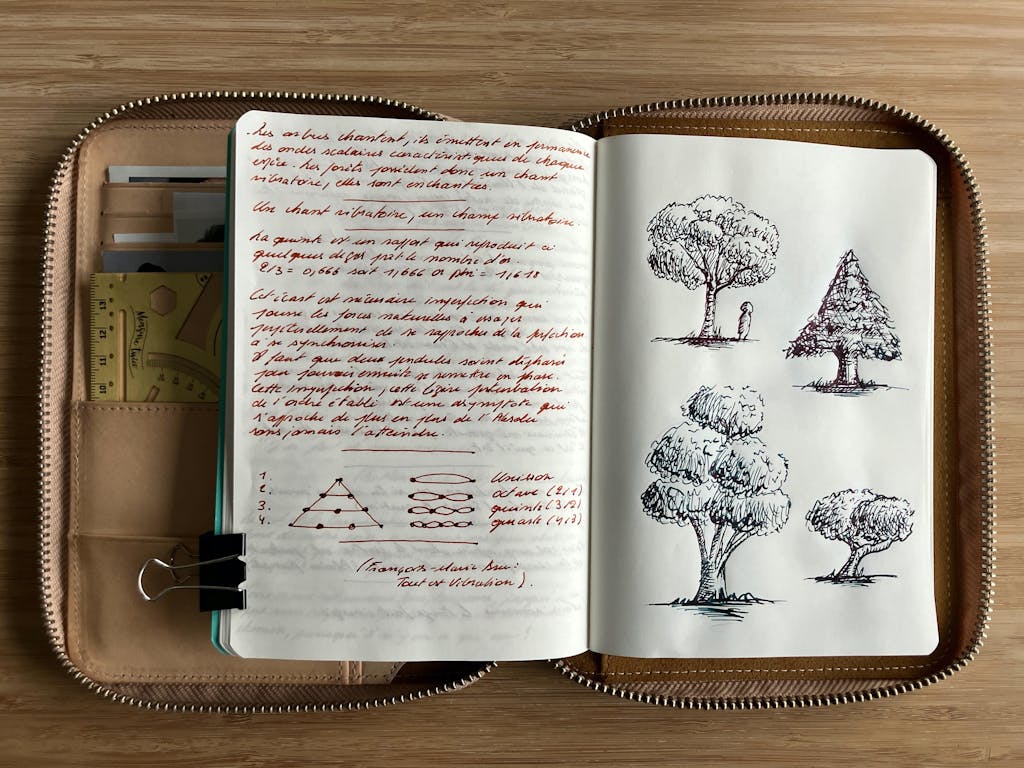 Les arbres chantent, ils émettent en permanence
des ondes scalaires caractéristiques de chaque
espèce. Les forêts possèdent donc un chant
vibratoire, elles sont enchantées.
Un chant vibratoire, un champ vibratoire.
La quinte est un rapport qui reproduit à
quelques près le nombre d'or.
2/3 = 0,666 soit 1,666 or phi = 1,618
Cet écart est nécessaire imperfection qui
pousse les forces naturelles à essayer
perpétuellement de se rapprocher de la perfection
à se synchroniser.
Il faut que deux pendules soient déphasés
pour pouvoir ensuite se remettre en phase.
Cette imperfection, cette légère perturbation
de l'ordre établi est une asymptote qui
s'approche de plus en plus de l'Absolu
sans jamais l'atteindre.
1. Unisson
2. octave (2/1)
3. quinte (3/2)
4. quarte (4/3)
(François-Marie
Tout est Vibration).
13
12
11
10